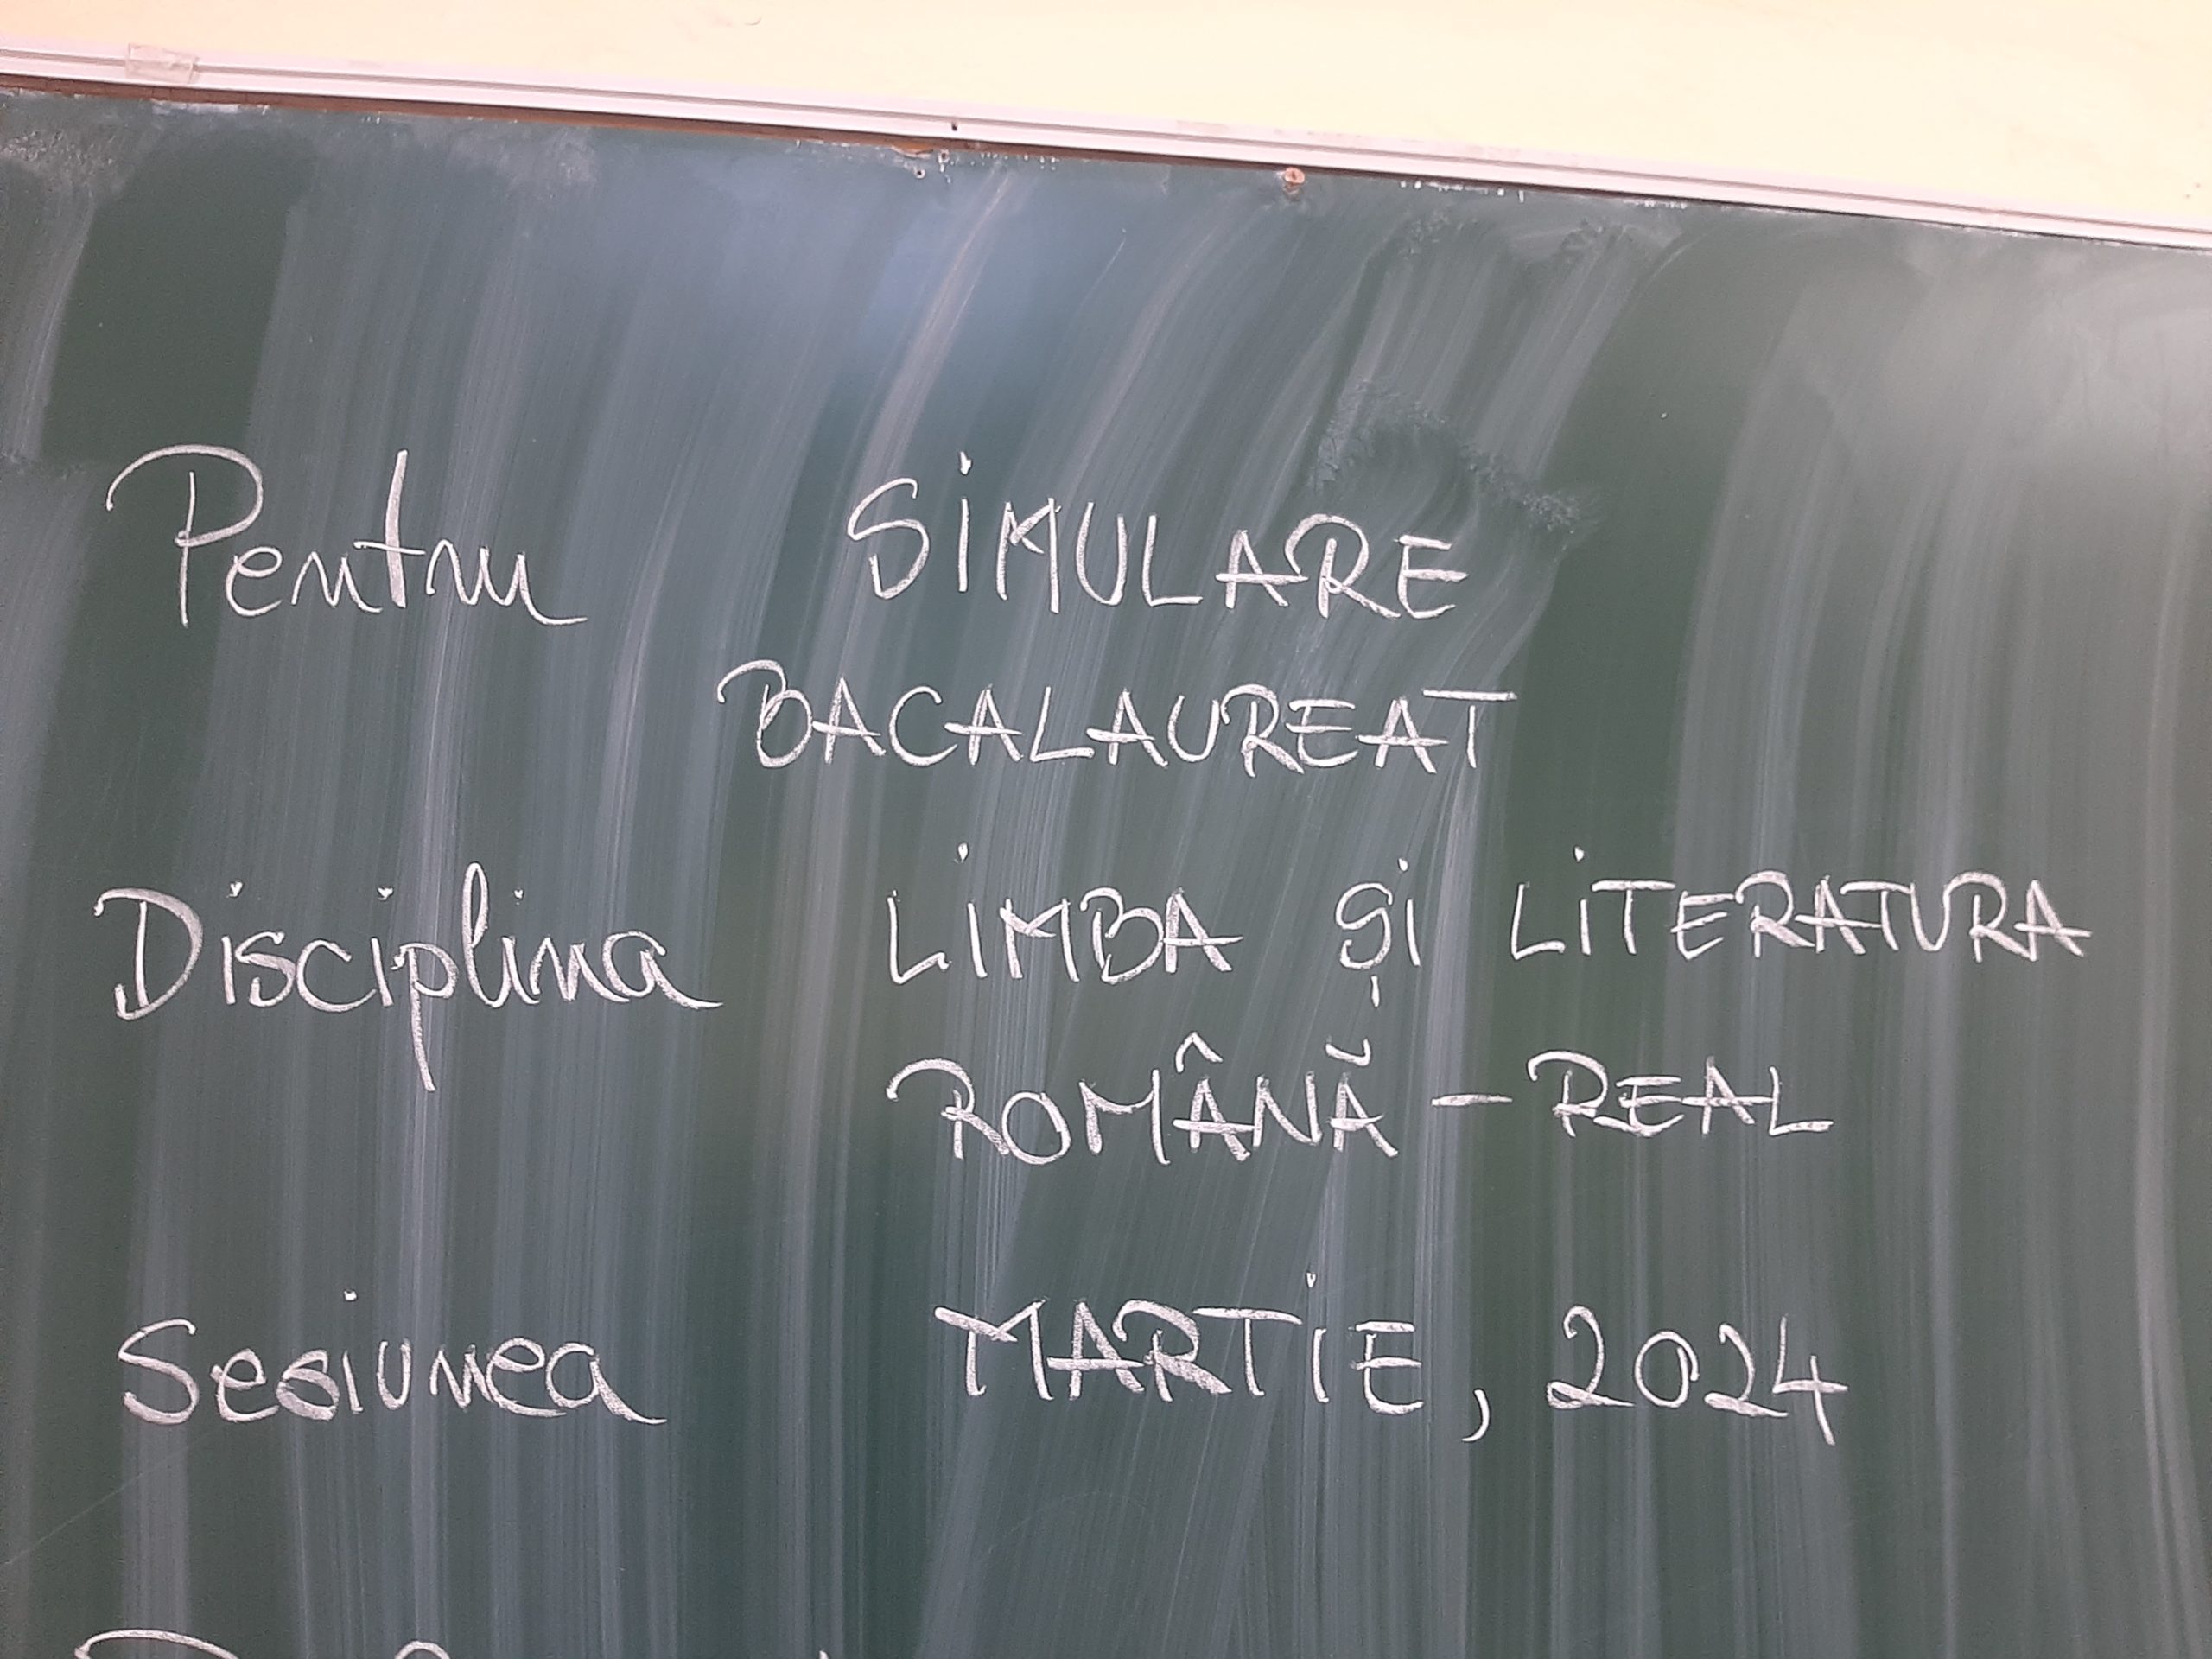 Pentru SIMULARE
BACALAUREAT
Disciplina LIMBA și LITERATURA
ROMÂNĂ - REAL
Sesiunea MARTIE, 2024